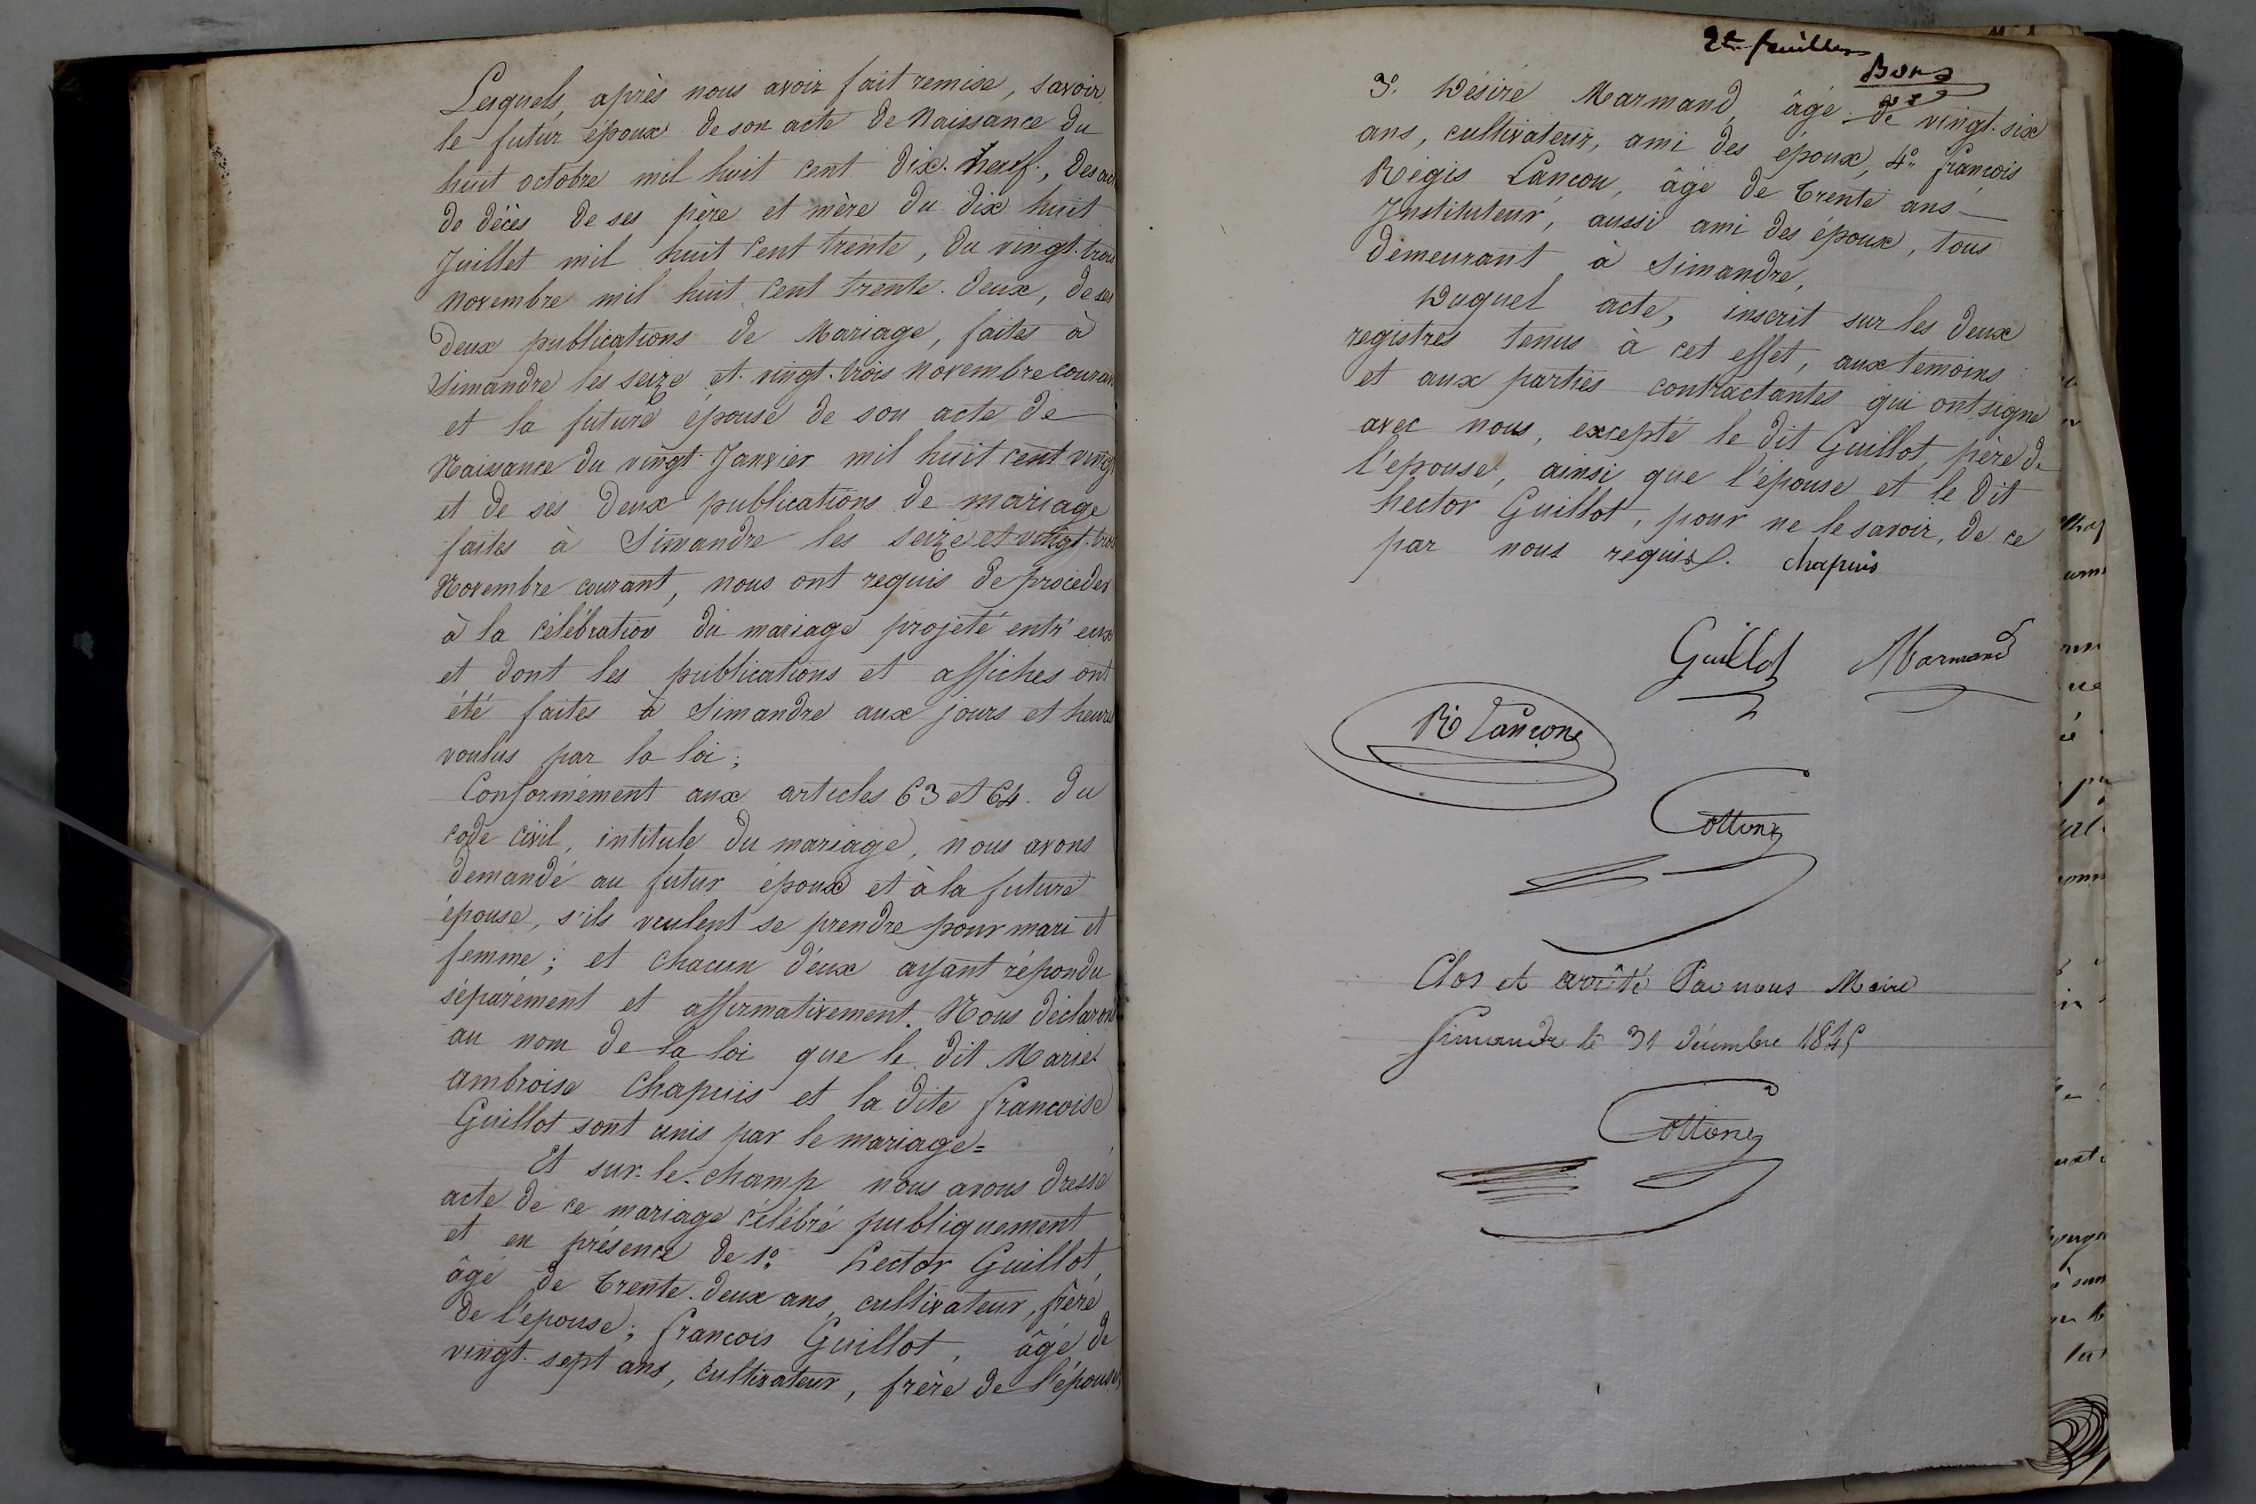 Lesquels, après nous avoir fait remise, savoir
le futur époux de son acte de Naissance du
huit octobre mil huit cent dix-neuf, des ac
de décès de ses père et mère du dix huit
Juillet mil huit cent trente, du vingt-trois
novembre mil huit cent trente-deux, de ses
deux publications de Mariage, faites à
Simandre les seize et vingt-trois novembre couran
et la future épouse de son acte de
Naissance du vingt Janvier mil huit cent vingt
et de ses deux publications de mariage
faites à Simandre les seize et vingt-trois
Novembre courant, nous ont requis de procéder
à la célébration du mariage projeté entr'eux
et dont les publications et affiches ont
été faites à Simandre aux jours et heures
voulus par la loi;
Conformément aux articles 63 et 64 du
code civil, intitulé du mariage, nous avons
demandé au futur époux et à la future
épouse, s'ils veulent se prendre pour mari et
femme; et chacun d'eux ayant répondu
séparément et affirmativement. Nous déclarons
au nom de la loi que le dit Marie
ambroise Chapuis et la dite francoise
Guillot sont unis par le mariage=
Et sur-le-champ nous avons dressé
acte de ce mariage célébré publiquement
et en présence de 1º hector Guillot
âgé de trente-deux ans, cultivateur, frère
de l'épouse; francois Guillot, âgé de
vingt-sept ans, cultivateur, frère de l'épouse,
2e feuille
3º Désiré Marmand, âgé de vingt-six
ans, cultivateur, ami des époux, 4º françois
Régis Lançon, âgé de trente ans
Instituteur, aussi ami des époux, tous
demeurant à Simandre,
Duquel acte, inscrit sur les deux
registres tenus à cet effet, aux temoins
et aux parties contractantes qui ont signé
avec nous, excepté le dit Guillot, père de
l'épouse, ainsi que l'épouse et le dit
hector Guillot, pour ne le savoir, de ce
par nous requis. Chapuis
Guillot Marmand
R Lançon
Cotton
Clos et arrêté Par nous Maire
Simandre le 31 décembre 1845
Cotton